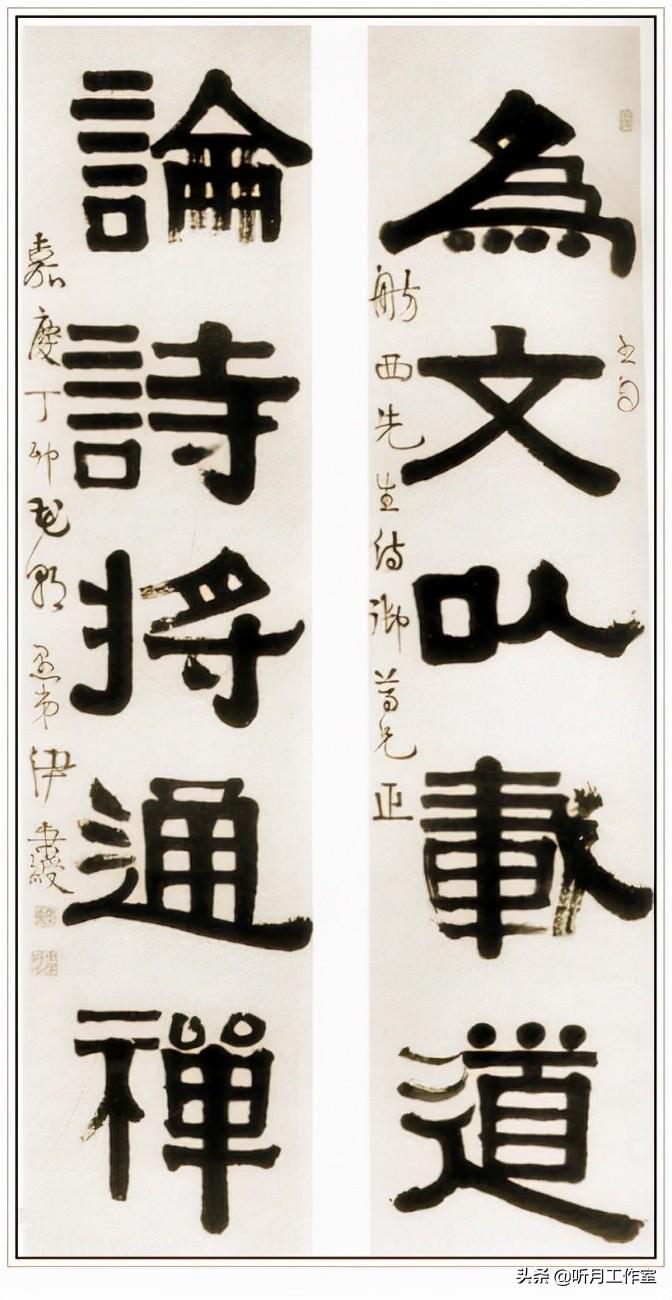 為文以載道
舫西先生侍御尊兄正
論詩將通禪
嘉慶丁卯花朝愚弟伊秉綬
头条 @听月工作室